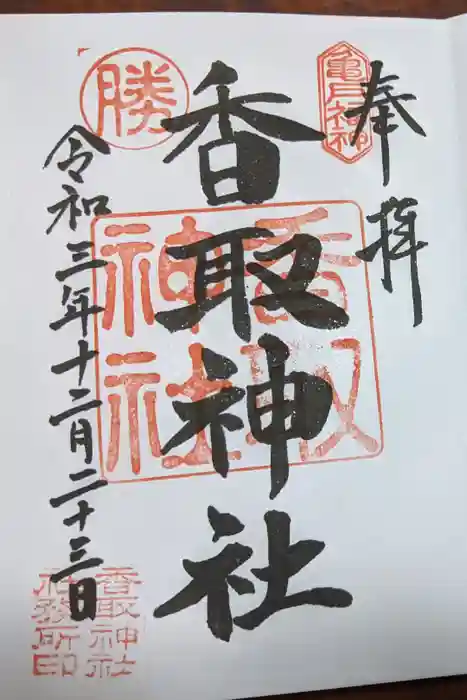 奉拝
亀戸福神
香取神社
香取神社
勝
令和三年十二月二十三日
香取神社
社務所印